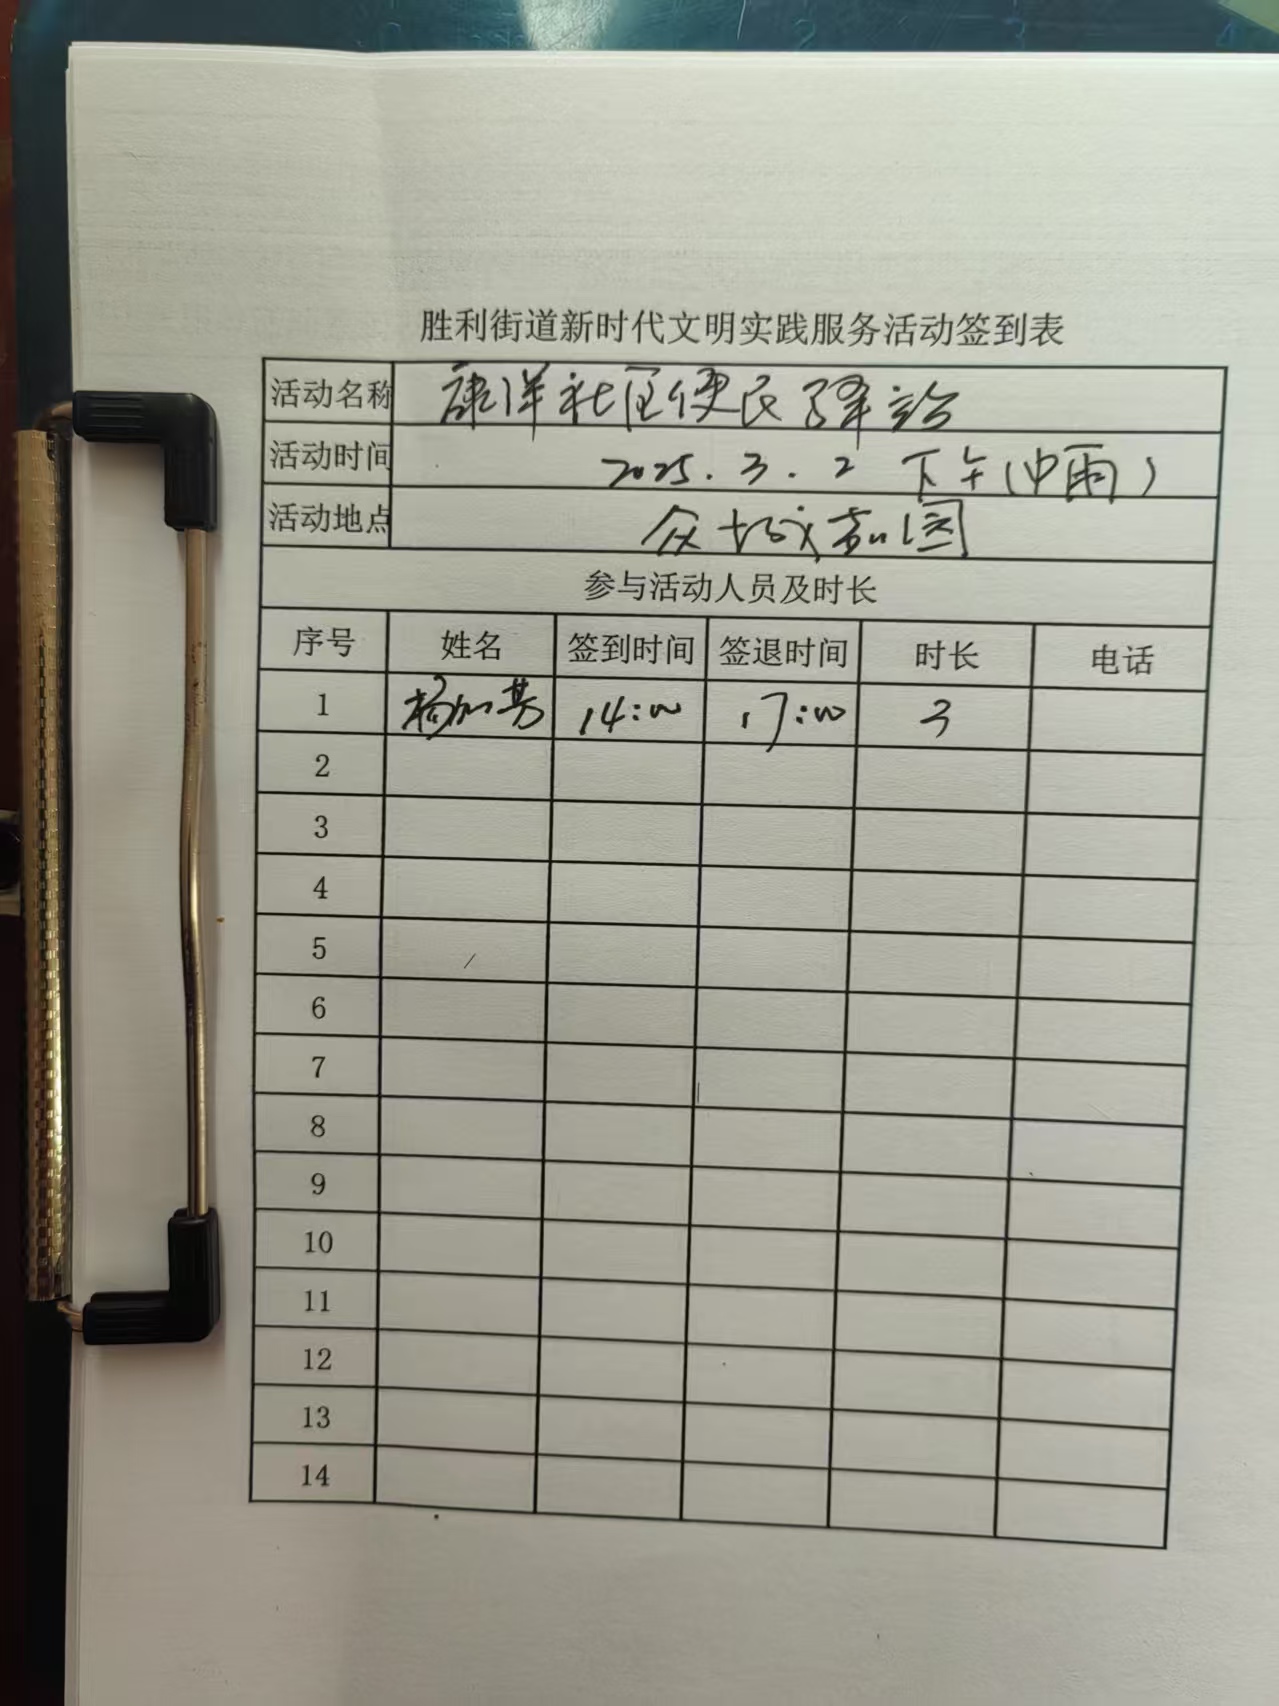 胜利街道新时代文明实践服务活动签到表
活动名称 康洋社区便民驿站
活动时间 2025.3.2 下午(中雨)
活动地点 众城嘉园
参与活动人员及时长
序号 姓名 签到时间 签退时间 时长 电话
1 杨加芳 14:00 17:00 3
2
3
4
5
6
7
8
9
10
11
12
13
14